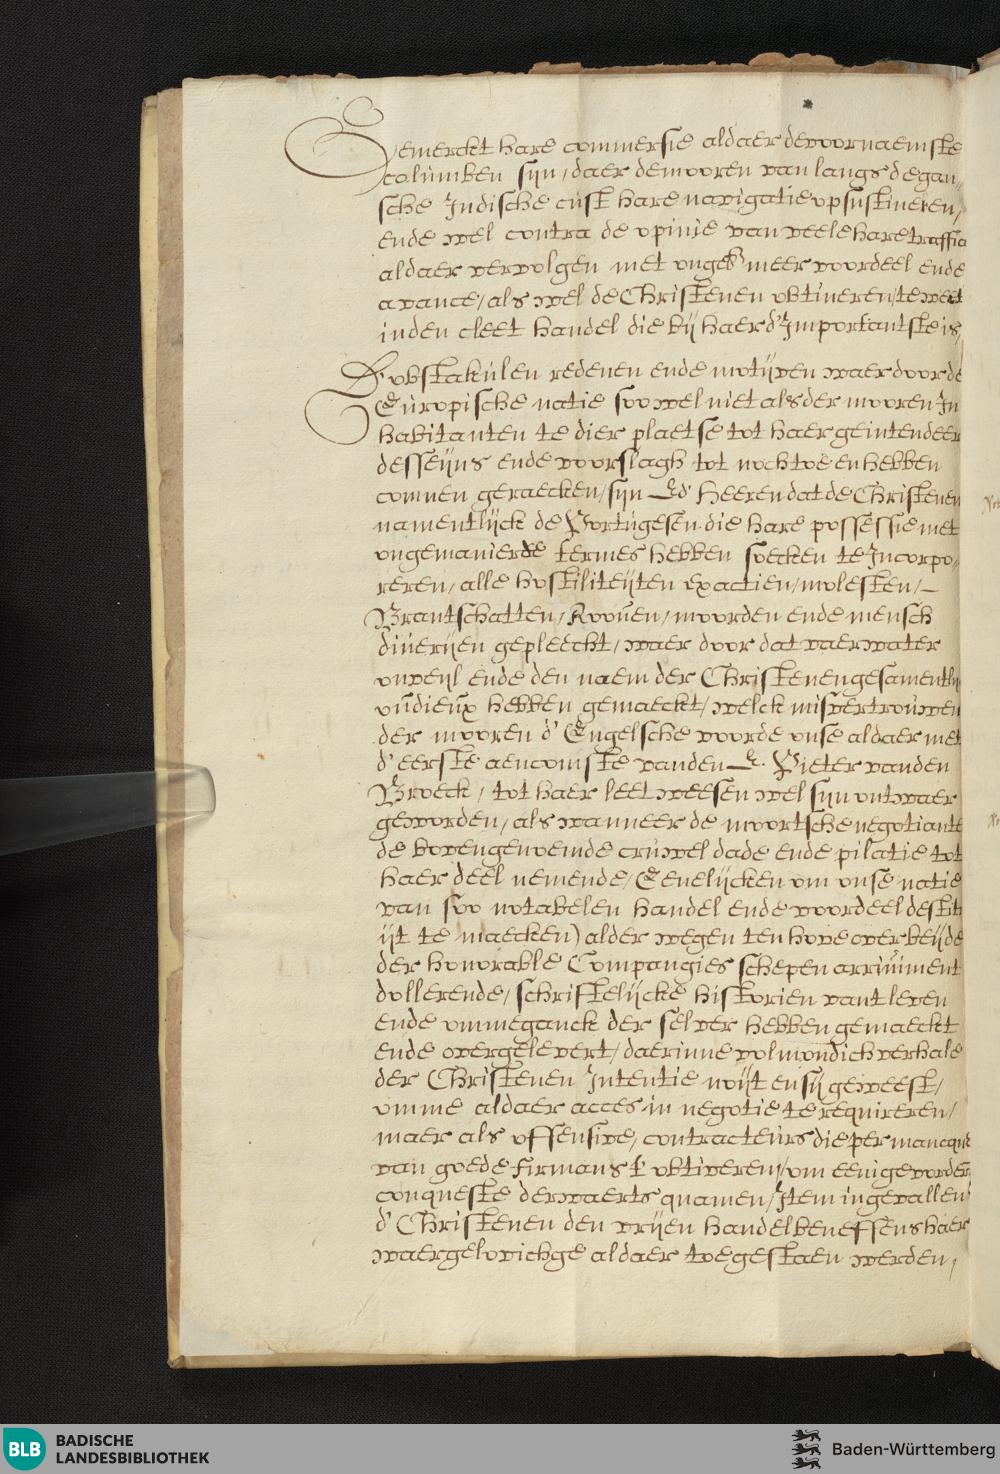 Gemerckt hare commersie aldaer de voornaemste
columben sijn, daer de mooren van langs de gan„
sche Indische cust hare navigatie op sustineren,
ende wel contra de opinie van veele hare traffic
aldaer vervolgen met ongelt meer voordeel ende
avance, als wel de Christenen obtineren, te weet
in den cleet handel die bij haer d'Importantste is,
D'obstakulen redenen ende motijven waer door de
Europische natie soo wel niet als der mooren In
habitanten te dier plaetse tot haer geintendeer
desseijns ende voorslagh tot noch toe en hebben
connen geraecken, sijn Ed' Heeren dat de Christenen
namentlijck de Portugesen die hare possessie met
ongemanierde termes hebben soecken te Incorpo„
reren, alle hostiliteijten exactien, molesten,
Brantschatten, Rooven, moorden ende mensch
diuerijen gepleecht, waer door dat vaerwater
onveijl ende den naem der Christenen gesamentlij
oudieux hebben gemaeckt, welck misvertrouwen
der mooren d' Engelsche voorde onse aldaer met
d'eerste aencomste vanden E. Pieter vanden
Broeck, tot haer leet weesen wel sijn ontwaer
geworden, als wanneer de moortsche negotiante
de bovengenoemde cruwel dade ende pilatie tot
haer deel nemende, (Eenelijcken om onse natie
van soo notabelen handel ende voordeel destit
ijt te maecken) alder wegen ten hove over beijde
der honorable Compangies schepen arriuiment
dollerende, schriftelijcke historien vant leven
ende ommeganck der selver hebben gemaeckt
ende overgelevert, daerinne volmondich verhale
der Christenen Intentie noijt en sij geweest,
omme aldaer acces in negotie te requireren,
maer als offensive, contracteurs die per mancque
van goede firmans t' obtineren, om eenige vorder
conqueste derwaerts quamen, Item ingevallen
d' Christenen den vrijen handel beneffens haer
waergelovichge aldaer toegestaen werden,
BLB BADISCHE
LANDESBIBLIOTHEK
Baden-Württemberg